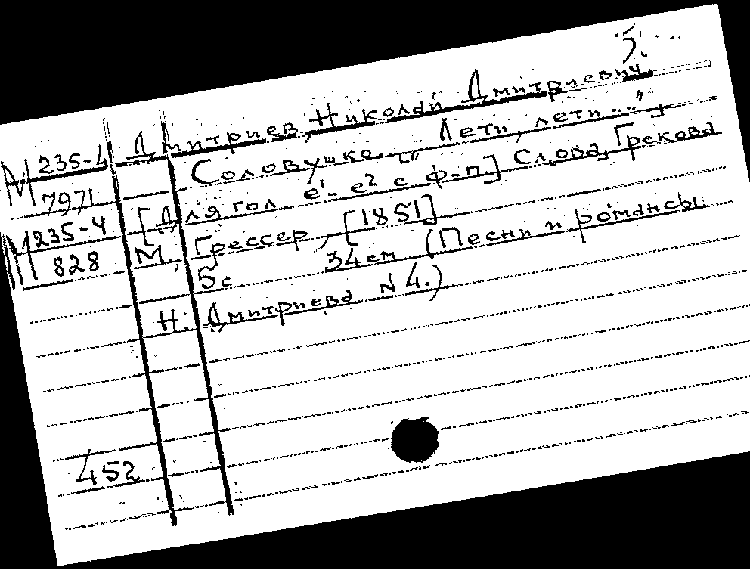 5.
М 235-4 Дмитриев, Николай Дмитриевич.
7971 Соловушко. [„Лети, лети...”]
М 235-4 [Для гол. e¹-e² с ф-п.] Слова Грекова
828 М., Грессер, [1851]
5с 34см (Песни и романсы
Н. Дмитриева №4.)
452